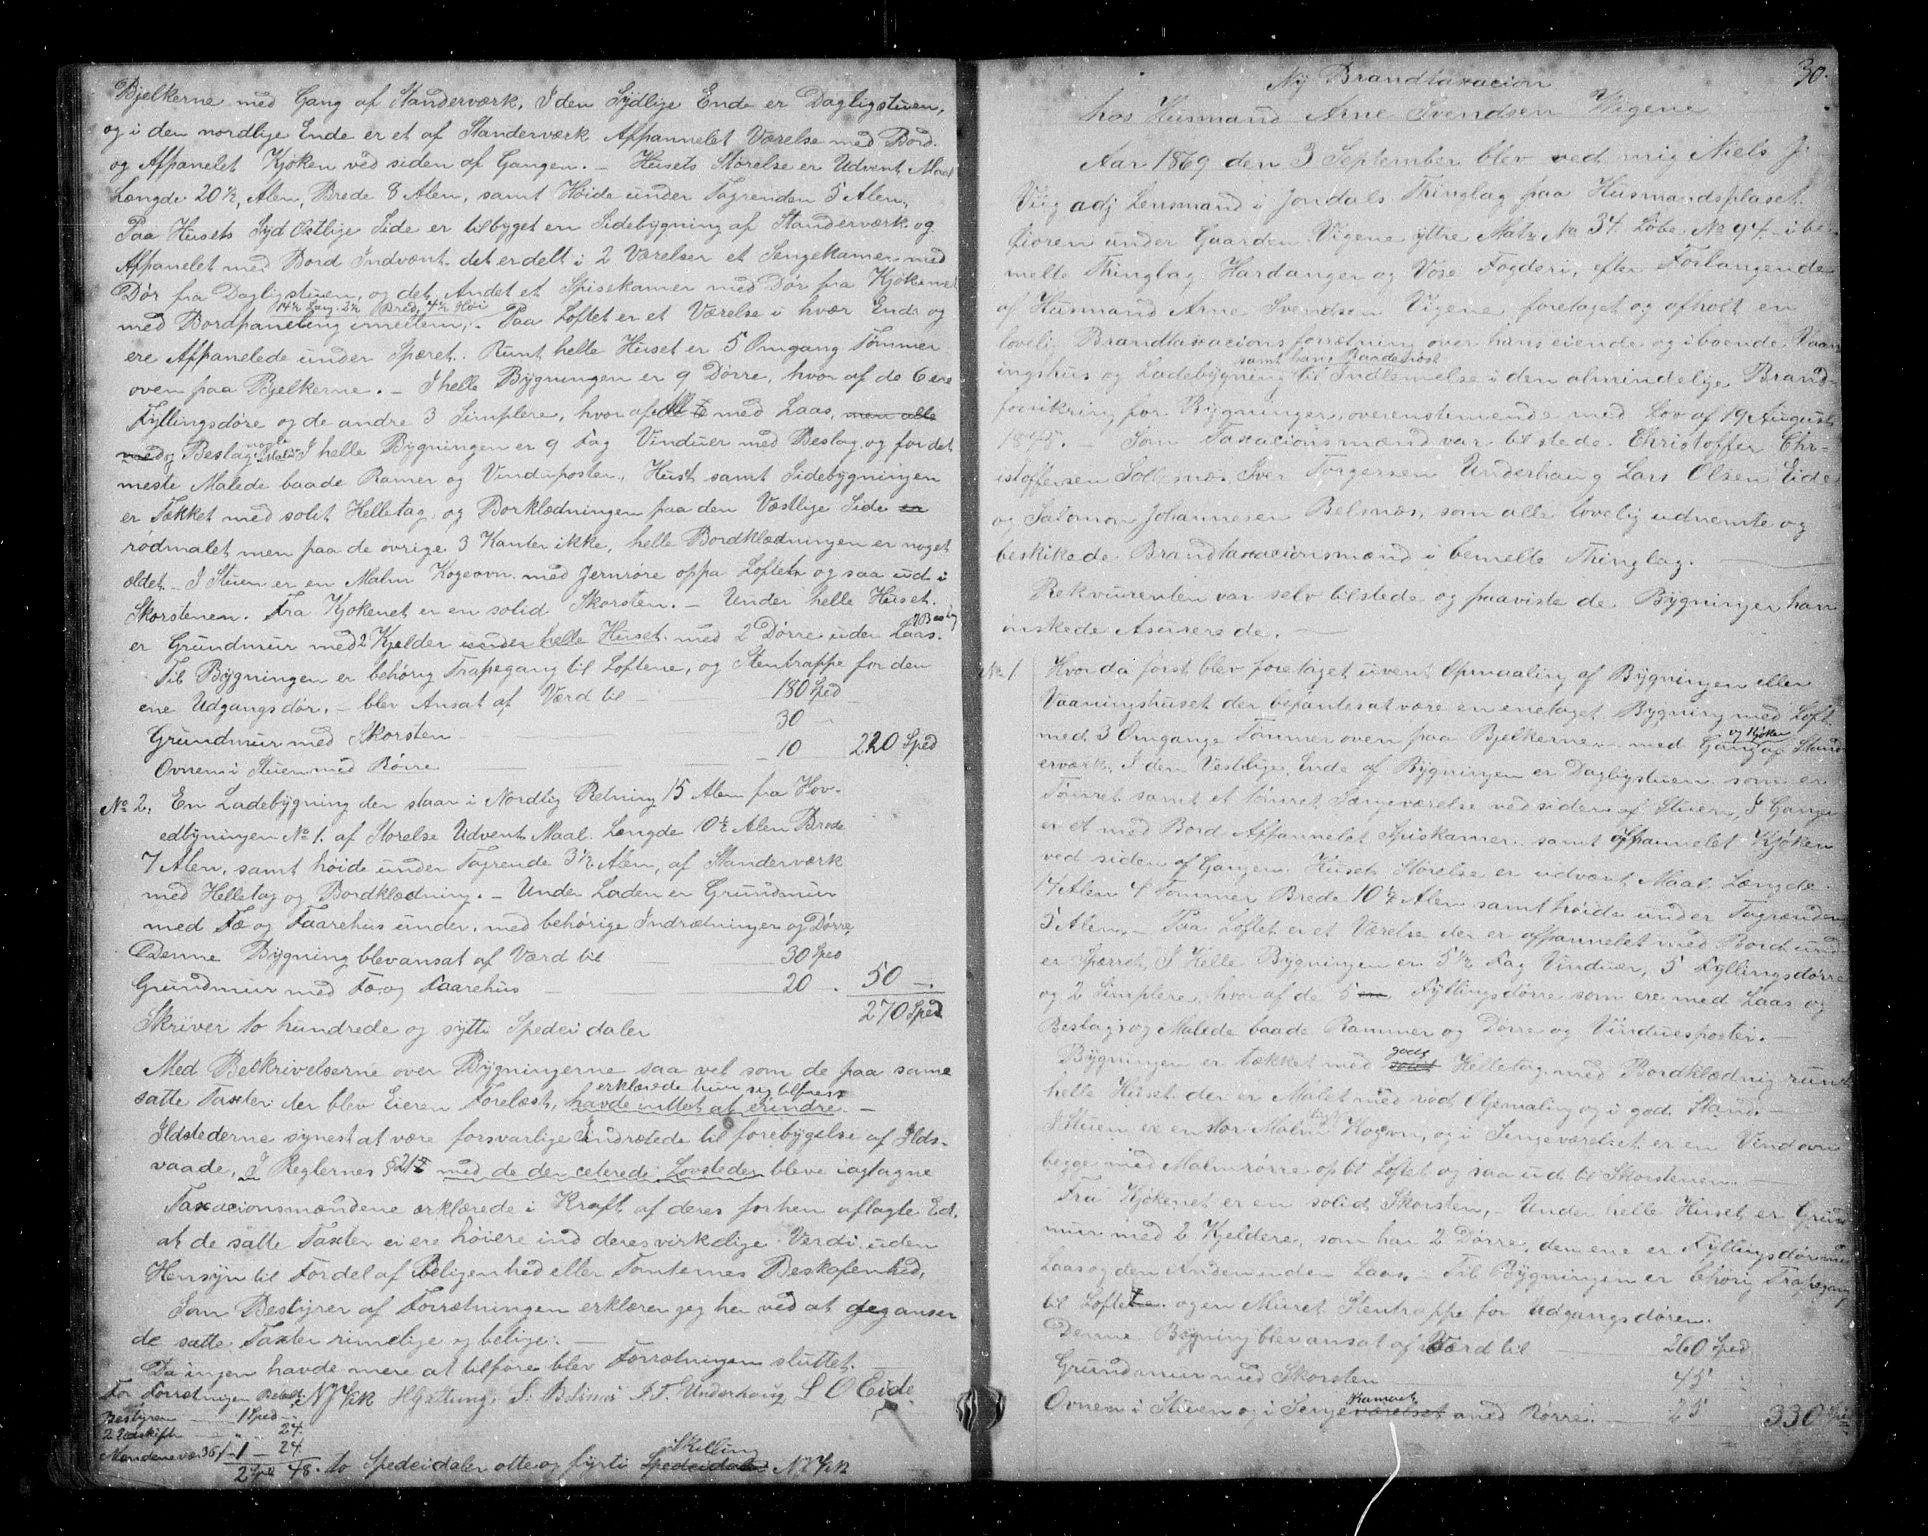 Bjelkerne med Gang af Standerværk, I den Sydlige Ende er Dagligstuen,
og i den nordlige Ende er et af Standerværk Afpannelet Værelse med Bord.
og Afpanelet Kjøken ved siden af Gangen. — Husets Størelse er Udvent. Maal
Længde 20½, Alen, Brede 8 Alen, samt Høide under Tagrenden 5 Alen,
Paa Husets Syd Ostlige Side er tilbyget en Sidebygning af Standerværk og
Afpanelet med Bord Indvænt. det er delt i 2 Værelser et Sengekamer med
Dør fra Dagligstuen, og det Andet et Spisekamer med Dør fra Kjøkenet
14½ Lang. 2½ Bred, 4½ Høi
med Bordpaneling imellem,. Paa Loftet er et Værelse i hvær Ende og
ere Afpanelede under Spæret. Runt helle Huset er 5 Omgang Tømmer
oven paa Bjelkerne. — I helle Bygningen er 9 Dørre, hvor af de 6 ere
Fyllingsdøre og de andre 3 Simplere, hvor af alle med Laas, men alle
med Beslag nogle Malet I helle Bygningen er 9 Fag Vinduer med Beslag og for det
meste Malede baade Ramer og Vinduposter, Huset samt Sidebygningen
er Tækket med solit Helletag, og Borklædningen paa den Væstlige Side er
rødmalet men paa de øvrige 3 Kanter ikke, helle Bordklædningen er noget
ældet — I Stuen er en Malm Kogeovn med Jernrøre oppa Loftet og saa ud i
Skorstenen. Fra Kjøkenet er en solid Skorsten. — Under helle Huset.
er Grundmur med 2 Kjelder under helle Huset med 2 Dørre uden Laas.
Til Bygningen er behørig Trapegang til Loftene, og Stentrappe for den
ene Udgangsdør. — blev Ansat af Værd til — 180 Spd
Grundmur med Skorsten — 30 —
Ovnen i Stuen med Rørre — 10 220 Spd
No 2. En Ladebygning der staar i Nordlig Retning 15 Alen fra Hov-
edbyningen No 1. af Størelse Udvent Maal. Længde 10½ Alen Brede
7 Alen, samt høide under Tagrende 3½ Alen, af Standerværk
med Helletag og Bordklædning. — Under Laden er Grundmur
med Fæ og Faarehus under, med behørige Indrætninger og Dørre,
Denne Bygning blev ansat af Værd til — 30 Sped
Grundmur med Fæ og Faarehus — 20 . 50 —
Skriver to hundrede og sytti Spedeidaler 270 Sped
Med Beskrivelserne over Bygningerne saa vel som de paa same
erklærede hun sig tilfreds
satte Taxter der blev Eieren Forelæst, havde intet at erindre —
Ildstederne synest at være forsvarlige Indrætede til forebygelse af Ilds-
vaade, I Reglernes § 21 med de der ceterede Lovsteder bleve iagtagne
Taxacionsmændene ærklærede i Kraft af deres forhen aflagte Ed.
at de satte Taxter ei ere høiere ind deres virkelige Verdi uden
Hensyn til Fordel af Beligenhed eller Tomternes Beskafenhed,
Som Bestyrer af Forrætningen erklærer jeg her ved at jeg anser
de satte Taxter rimelige og belige. —
Da ingen havde mere at tilføre blev Forrætningen sluttet. —
For Forrætningen Betalt N J Vik H Gjøttung, S: Belsnæs I. T. Underhaug L O Eide
Bestyren — 1 Sped —
2 Udskift — " 24.
Mændene vær 36 ß — 1 — 24
Skilling
2 Spd 48. to Spedeidaler otte og fyrti Spedeidaler N J Vik
30.
Ny Brandtaxacion
hos Husmand Arne Svendsen Vigene
Aar 1869 den 3 September blev ved mig Niels J:
Viig adj Lensmand i Jondals Thinglag paa Husmandsplaset
under Gaarden Vigene yttre Matr No 34. Løbe No 94 i be-
melte Thinglag Hardanger og Vose Fogderi, efter Forlangende
af Husmand Arne Svendsen Vigene foretaget og afholt en
lovli Brandtaxacions forrætning over hans eiende og iboende Vaan-
samt hans Baadenøst
ingshus og Ladebygning til Indlemelse i den almindelige Brand-
forsikring for Bygninger, overenstemende med Lov af 19 August
1845. — Som Taxacionsmænd var tilstede Christoffer Chr-
istoffersen Solesnæs Iver Torgersen Underhaug Lars Olsen Eide
og Salomon Johannesen Belsnæs, som alle lovelig udnemte og
beskikede Brandtaxacionsmænd i bemelte Thinglag. —
Rekvurenten var selv tilstede og paaviste de Bygninger han
ønskede Asurerede. —
No 1 Hvor da først blev foretaget uvent Opmaaling af Bygningen eller
Vaaningshuset der befantes at være en enetaget Bygning med Loft
og Kjøken
med 3 Omgange Tømmer oven paa Bjelkerne — med Gang af Stand-
erværk. I den Vestlige Ende af Bygningen er Dagligstuen som er
Tømret samt et tømret Sængeværelse ved siden af Stuen, I Gangen
er et med Bord Afpannelet Spiskamer. samt afpannelet Kjøken
ved siden af Gangen. Husets Størelse er udvænt Maal Længde
14 Alen 4 Tommer Brede 10½ Alen samt høide under Tagrænden
5 Alen. — Paa Loftet er et Værelse der er afpannelet med Bord und-
er Spærret, I Helle Bygningen er 5½ Fag Vinduer, 5 Fyllingsdørre
og 2 Simplere, hvor af de 5 Fyllingsdørre som ere med Laas og
Beslag og Malede baade Rammer og Dørre og Vinduesposter. —
godt
Bygningen er tækket med solit Helletag med Bordklædnig runt
helle Huset der er Malet med rød Oljemaling og i god Stand. —
I Stuen er en stor Malm Kogovn, og i Sengeværelset er en Vindovn
begge med Malmrørre op til Loftet og saa ud til Skorstenen. —
Fra Kjøkenet er en solid Skorsten, — Under helle Huset er Grund-
mur med 2 Kjeldere, som har 2 Dørre, den ene er Fyllingsdør med
Laas og den Anden uden Laas, — Til Bygningen er behørig Trapegang
til Loftet og en Muret Stentrappe for Udgangsdøren.
Denne Bygning blev ansat af Værd til — 260 Sped
Grundmur med Skorsten — 45
Kameret
Ovnen i Stuen og i Sengeværelset med Rørre. — 25 330 Spd